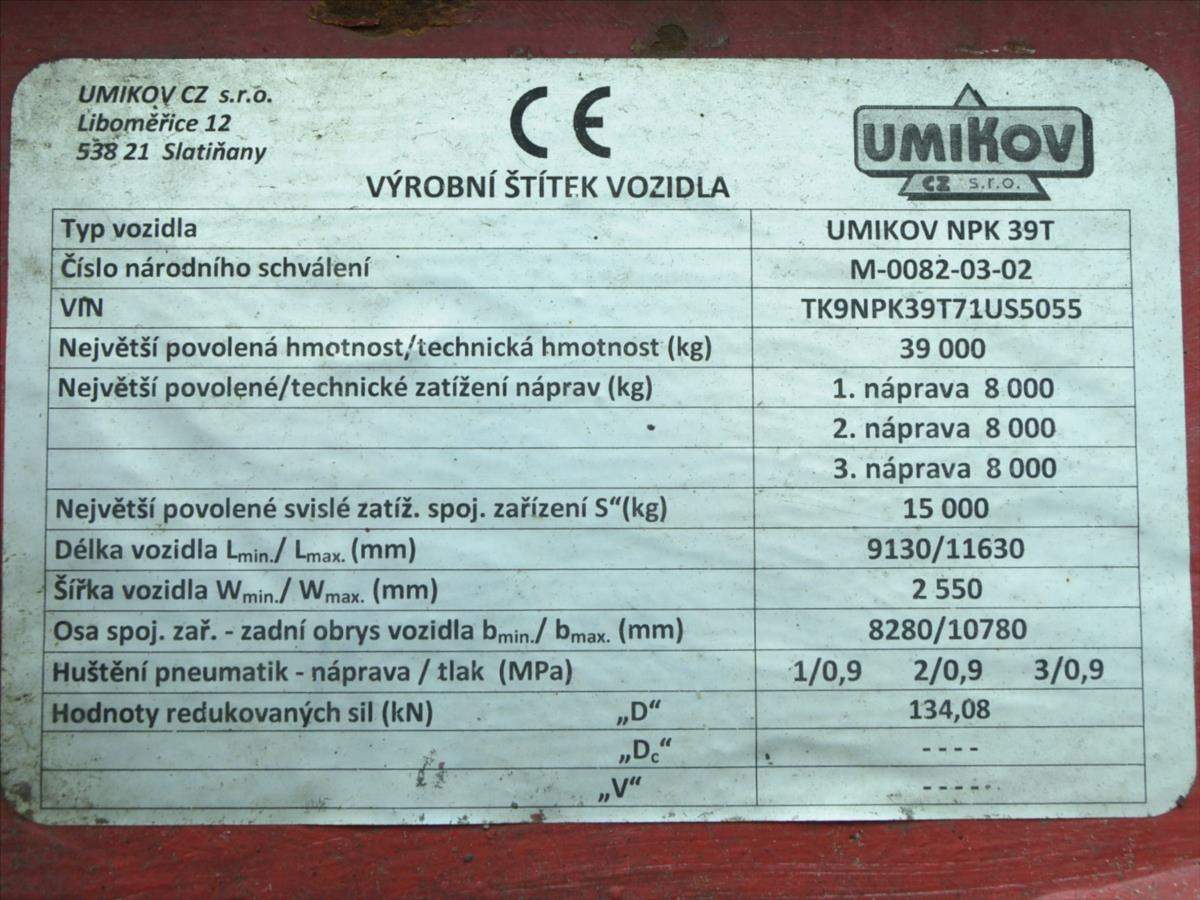 UMIKOV CZ s.r.o.
Liboměřice 12
538 21 Slatiňany
CE
UMIKOV
CZ s.r.o.
VÝROBNÍ ŠTÍTEK VOZIDLA
Typ vozidla UMIKOV NPK 39T
Číslo národního schválení M-0082-03-02
VIN TK9NPK39T71US5055
Největší povolená hmotnost/technická hmotnost (kg) 39 000
Největší povolené/technické zatížení náprav (kg) 1. náprava 8 000
2. náprava 8 000
3. náprava 8 000
Největší povolené svislé zatíž. spoj. zařízení S“(kg) 15 000
Délka vozidla Lmin./ Lmax. (mm) 9130/11630
Šířka vozidla Wmin./ Wmax. (mm) 2 550
Osa spoj. zař. - zadní obrys vozidla bmin./ bmax. (mm) 8280/10780
Huštění pneumatik - náprava / tlak (MPa) 1/0,9 2/0,9 3/0,9
Hodnoty redukovaných sil (kN) „D“ 134,08
„Dc“ ----
„V“ -----